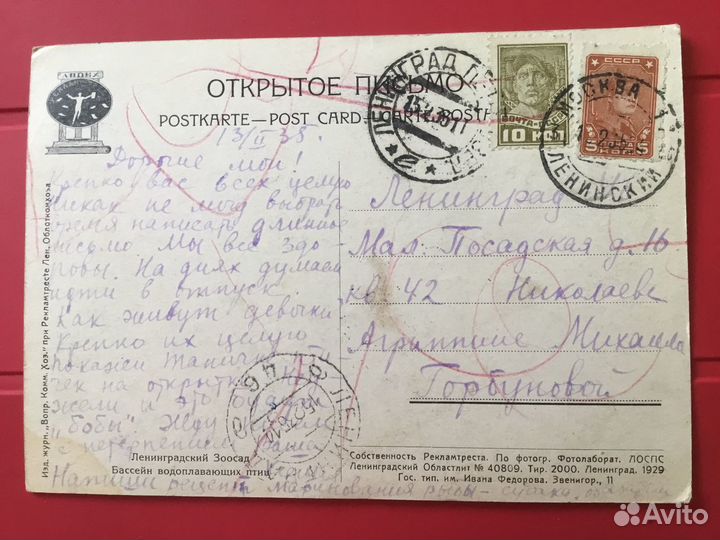 ОТКРЫТОЕ ПИСЬМО
POSTKARTE—POST CARD—CARTE POSTALE
13/II 35
Дорогие мои!
Крепко вас всех целую
никак не могу выбрать
время написать длинное
письмо Мы все здо-
ровы. На днях думаем
идти в отпуск.
Как живут девочки
Крепко их целую
Покажи Танич
чек на открытке
жели и это будут
"бобы". Жду писем
с нетерпением Ваша
Напиши рецепт маринования рыбы —
Ленинград
Мал. Посадская д. 16
кв 42 Николаевс
Агриппине Михайл
Горбуновой
ЛЕНИНГРАД
ПОЧТА СССР
10 КОП
СССР
5 5
МОСКВА
ЛЕНИНСКИЙ
Изд. журн. „Вопр. Комм. Хоз." при Рекламтресте Лен. Облоткомхоза
Ленинградский Зоосад
Бассейн водоплавающих птиц
Собственность Рекламтреста. По фотогр. Фотолаборат. ЛОСПС
Ленинградский Областлит № 40809. Тир. 2000. Ленинград. 1929
Гос. тип. им. Ивана Федорова. Звенигор., 11
Avito